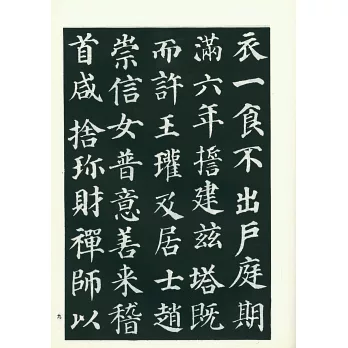 衣一食不出戶庭期
滿六年擔建茲塔既
而許王瓘及居士趙
崇信女普意善来稽
首咸捨珎財禪師以
九